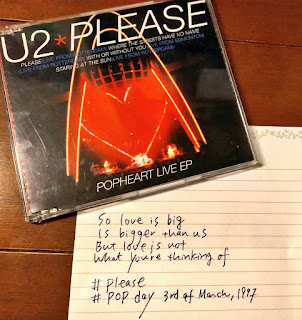 U2*PLEASE
PLEASE(LIVE FROM ROTTERDAM) WHERE THE STREETS HAVE NO NAME
(LIVE FROM ROTTERDAM) WITH OR WITHOUT YOU(LIVE FROM EDMONTON)
STARING AT THE SUN(LIVE FROM ROTTERDAM)
POPHEART LIVE EP
So love is big
Is bigger than us
But love is not
What you're thinking of
# please
# POP day 3rd of March, 1997